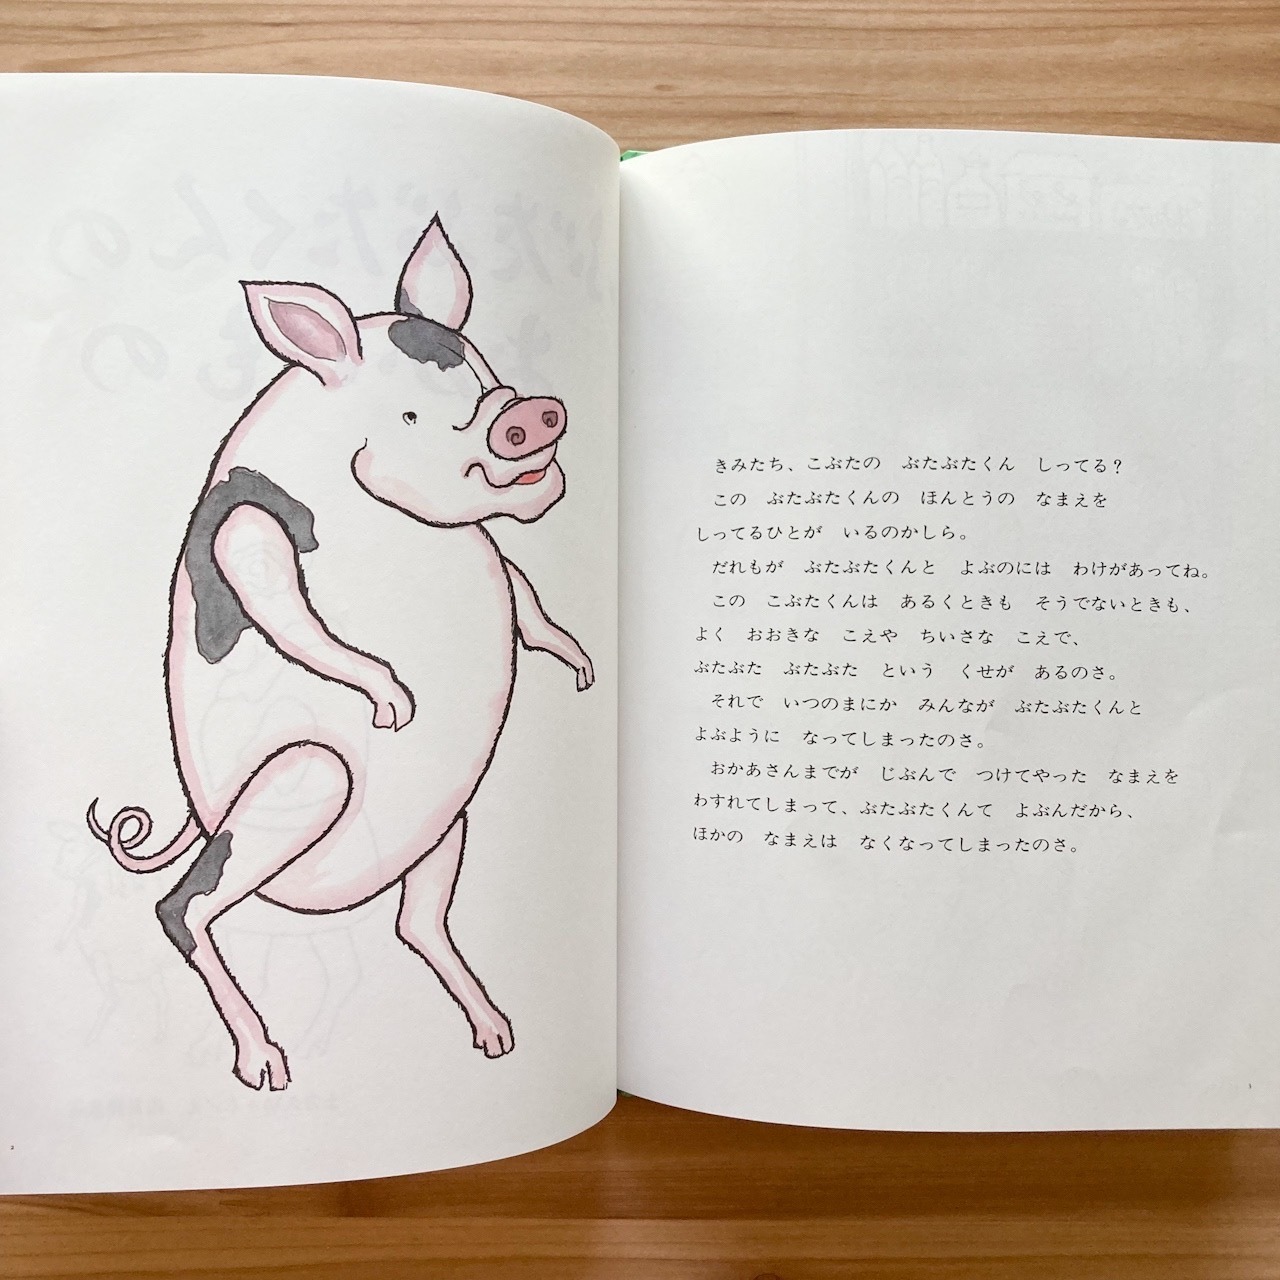 きみたち、こぶたの　ぶたぶたくん　しってる？
この　ぶたぶたくんの　ほんとうの　なまえを
しってるひとが　いるのかしら。
だれもが　ぶたぶたくんと　よぶのには　わけがあってね。
この　こぶたくんは　あるくときも　そうでないときも、
よく　おおきな　こえや　ちいさな　こえで、
ぶたぶた　ぶたぶた　という　くせが　あるのさ。
それで　いつのまにか　みんなが　ぶたぶたくんと
よぶように　なってしまったのさ。
おかあさんまでが　じぶんで　つけてやった　なまえを
わすれてしまって、ぶたぶたくんて　よぶんだから、
ほかの　なまえは　なくなってしまったのさ。